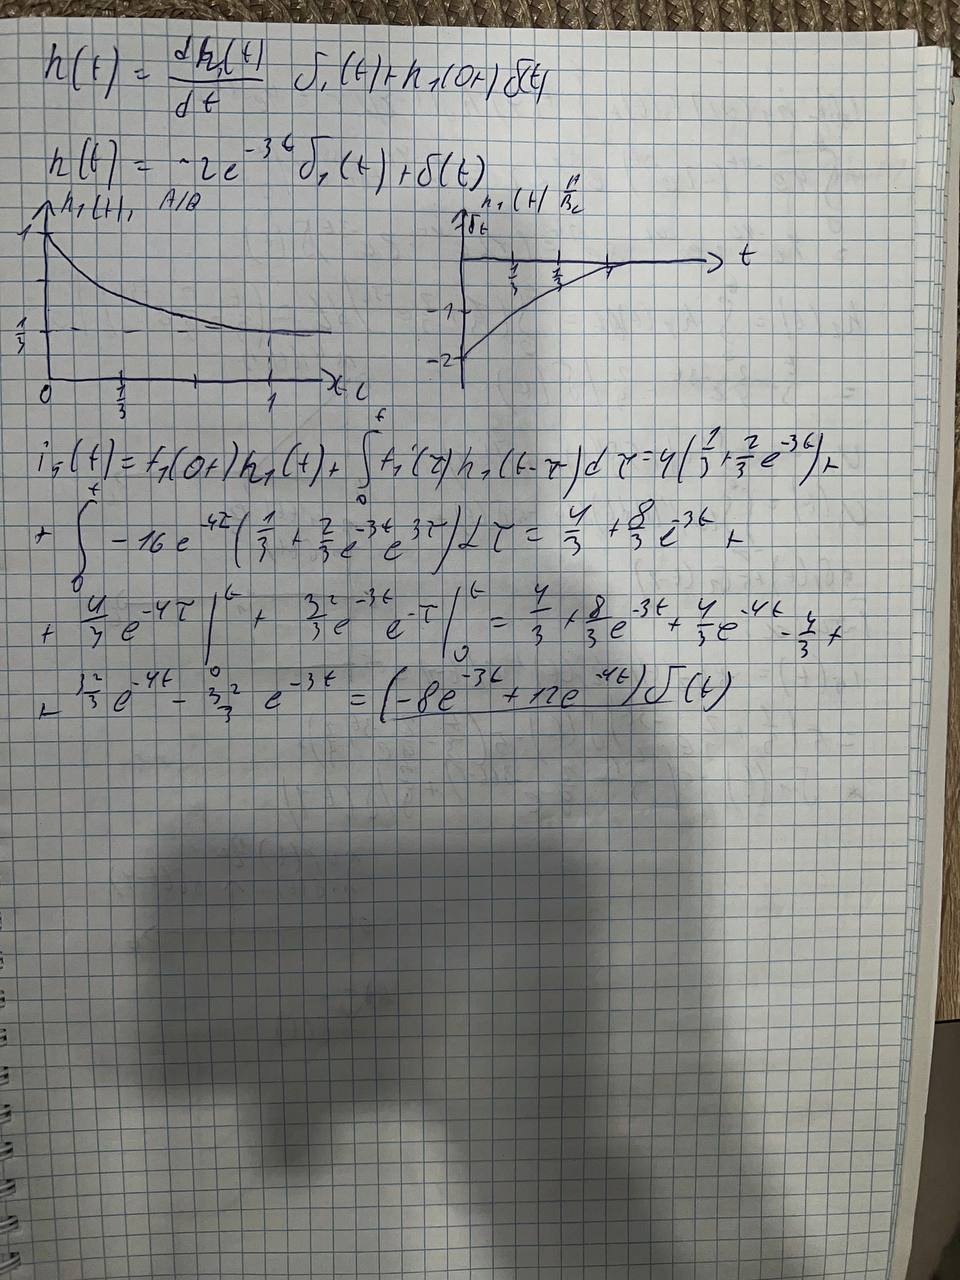 h(t) = dh₁(t)/dt δ₁(t) + h₁(0+) δ(t)
h(t) = -2e^{-3t} δ₁(t) + δ(t)
h₁(t), A/B
1
1/3
0 1/3 1 t, c
h₁(t) A/Bc
δt
1/3 1/3 1 t
-1
-2
i₁(t) = f₁(0+)h₁(t) + ∫₀ᵗ f₁'(τ)h₁(t-τ)dτ = 4(1/3 + 2/3 e^{-3t}) +
+ ∫₀ᵗ -16e^{4τ}(1/3 + 2/3 e^{-3t}e^{3τ})dτ = 4/3 + 8/3 e^{-3t} +
+ 4/3 e^{-4τ}|₀ᵗ + 32/3 e^{-3t}e^{-τ}|₀ᵗ = 4/3 + 8/3 e^{-3t} + 4/3 e^{-4t} - 4/3 +
+ 32/3 e^{-4t} - 32/3 e^{-3t} = (-8e^{-3t} + 12e^{-4t})δ(t)